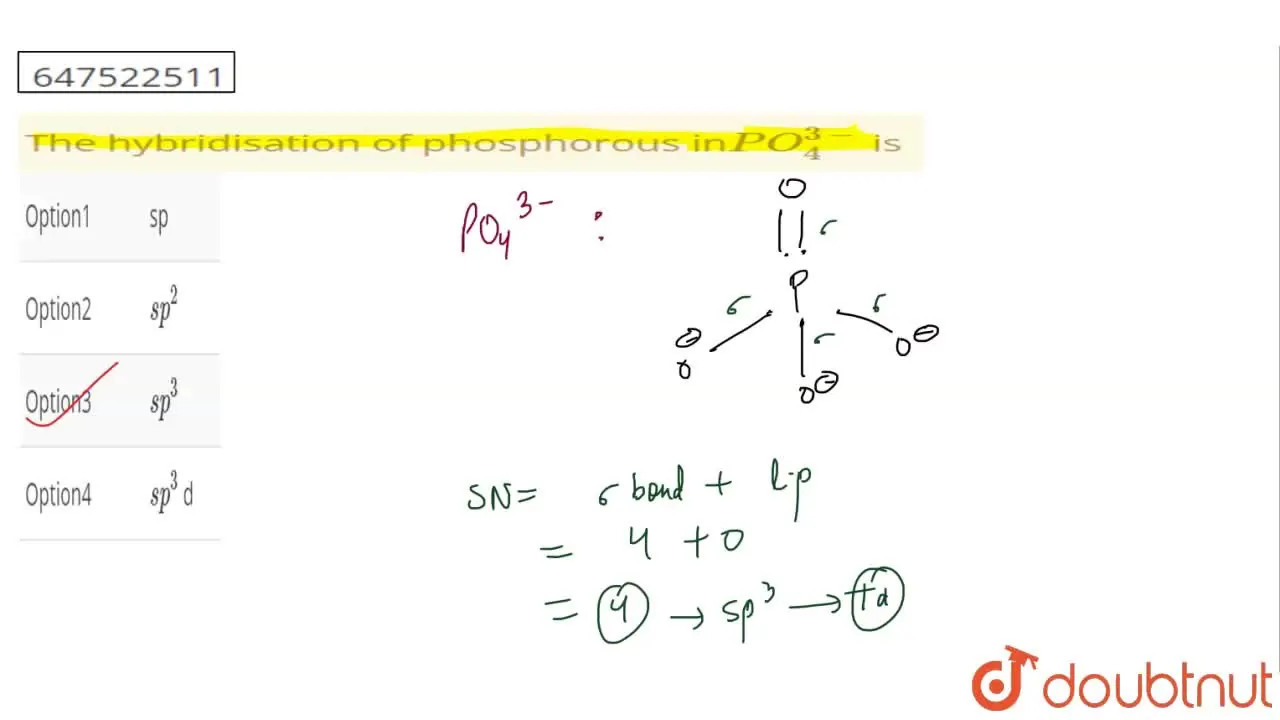 647522511
The hybridisation of phosphorous in PO₄³⁻ is
Option1 sp
Option2 sp²
Option3 sp³
Option4 sp³ d
PO₄³⁻ :
O
σ
P
σ σ
σ
⊖ O O ⊖
O ⊖
SN = σ bond + l.p
= 4 + 0
= 4 → sp³ → Td
doubtnut